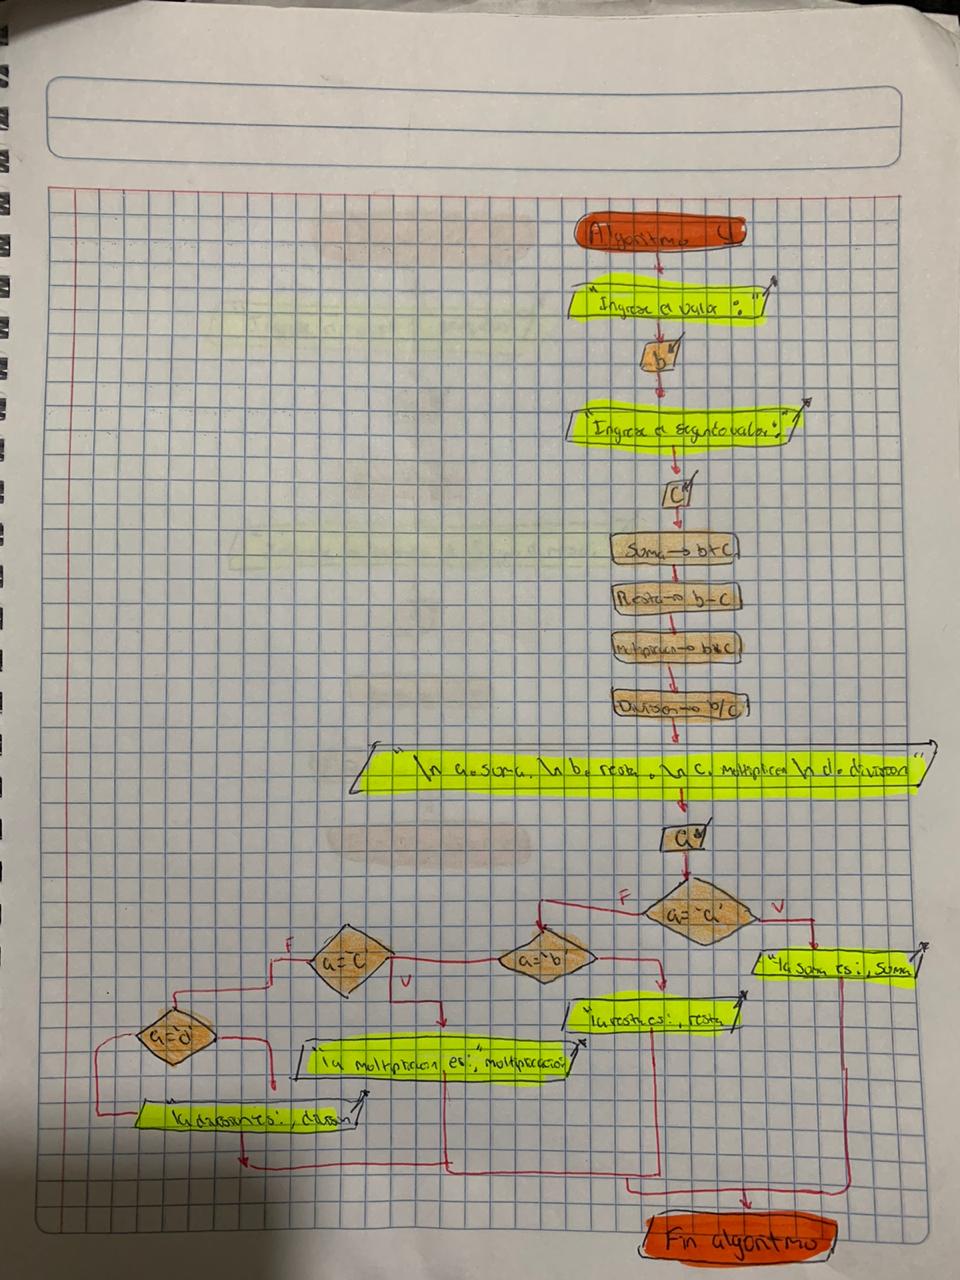 Algoritmo 4
"Ingrese el valor :"
b
"Ingrese el segunto valor:"
C
Suma → b+C
Resta → b-C
Multiplicacion → b*C
Division → b/C
" \n a. suma. \n b. resta . \n c. multiplicacion \n d. division"
a
a='a'
F
V
a='b'
a='C'
F
V
a='d'
"la suma es:, suma
"la resta es:, resta
"la multiplicacion es:," multiplicacion
"la division es:, division
Fin algoritmo